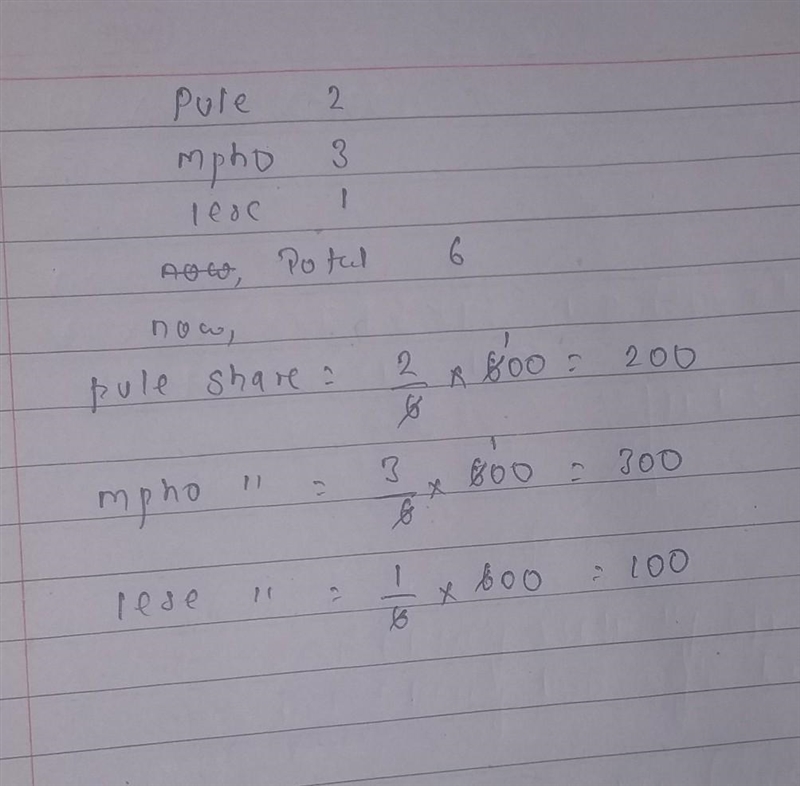 Pule 2
mpho 3
lese 1
now, Total 6
now,
pule share = 2/6 × 600 = 200
mpho " = 3/6 × 600 = 300
lese " = 1/6 × 600 = 100